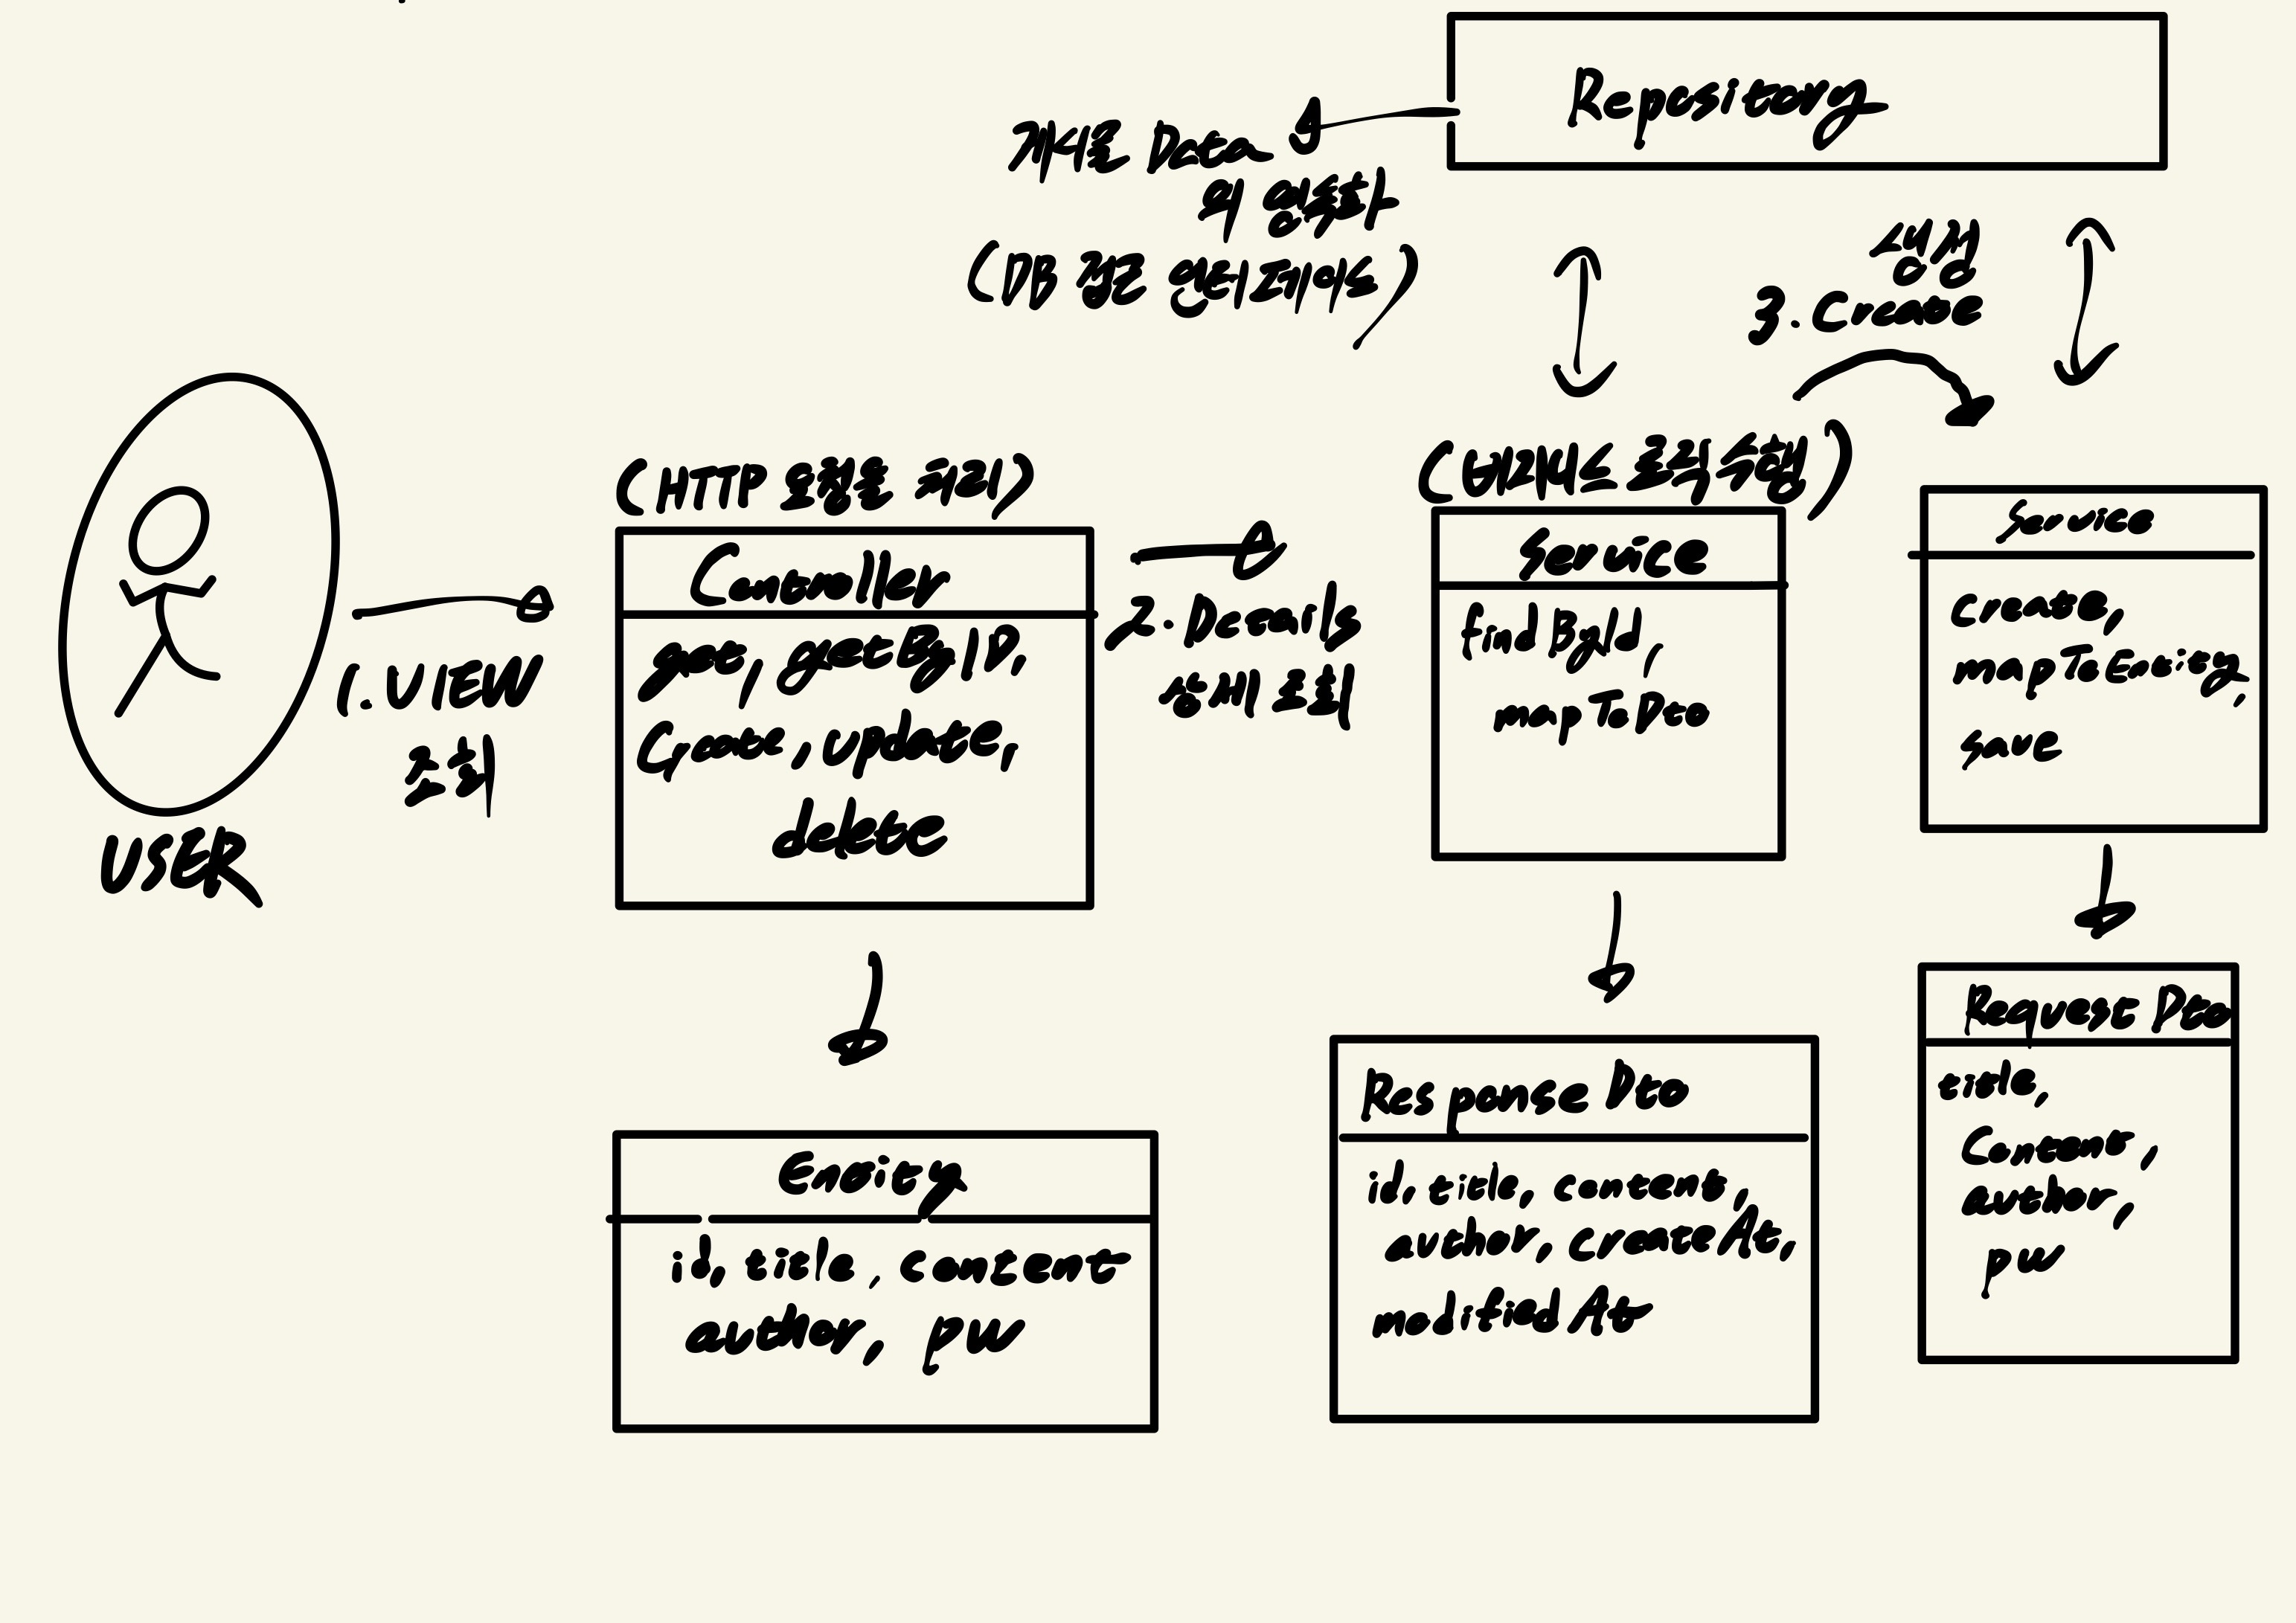 Repository
게시물 Data
의 영속화
(DB 접근 인터페이스)
생성
3. Create
(HTTP 요청을 처리)
Controller
get, getByID,
Create, update,
delete
USER
1. VIEW
조회
2. Details
상세 조회
(비지니스 로직 수행)
Service
findById,
mapToDto
Service
create,
mapToEntity,
save
Entity
id, title, content
author, pw
Response Dto
id, title, content,
author, createAt,
modifiedAt
Request Dto
title,
Content,
author,
pw